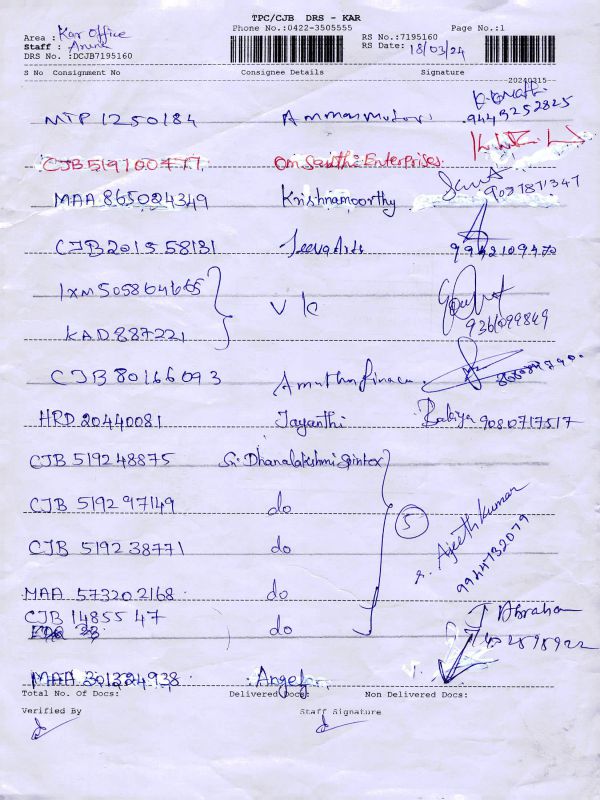 TPC/CJB DRS - KAR
Phone No.:0422-3505555
Page No.:1
Area : Kar Office
Staff : Aruna
DRS No. :DCJB7195160
RS No.:7195160
RS Date: 18/03/24
S No Consignment No Consignee Details Signature
20240315
MTP 1250184 9443252825
CJB 519100777 Om Santhi Enterprises
MAA 865024349 Krishnamoorthy
CJB 201558131 Jeeva Aids 9942109470
IXM 505864665
VK
KAD 887221 9361099849
CJB 80166093
HRD 20440081 Jayanthi Babiya 9080717517
CJB 519248875 Sri Dhanalakshmi Spintex
CJB 519297149 do
5
CJB 519238771 do
r. Ajeethkumar
9944732079
MAA 573202168 do
CJB 1485547 do
Abraham
MAA 301324938
Total No. Of Docs: Delivered Docs: Non Delivered Docs:
Verified By Staff Signature